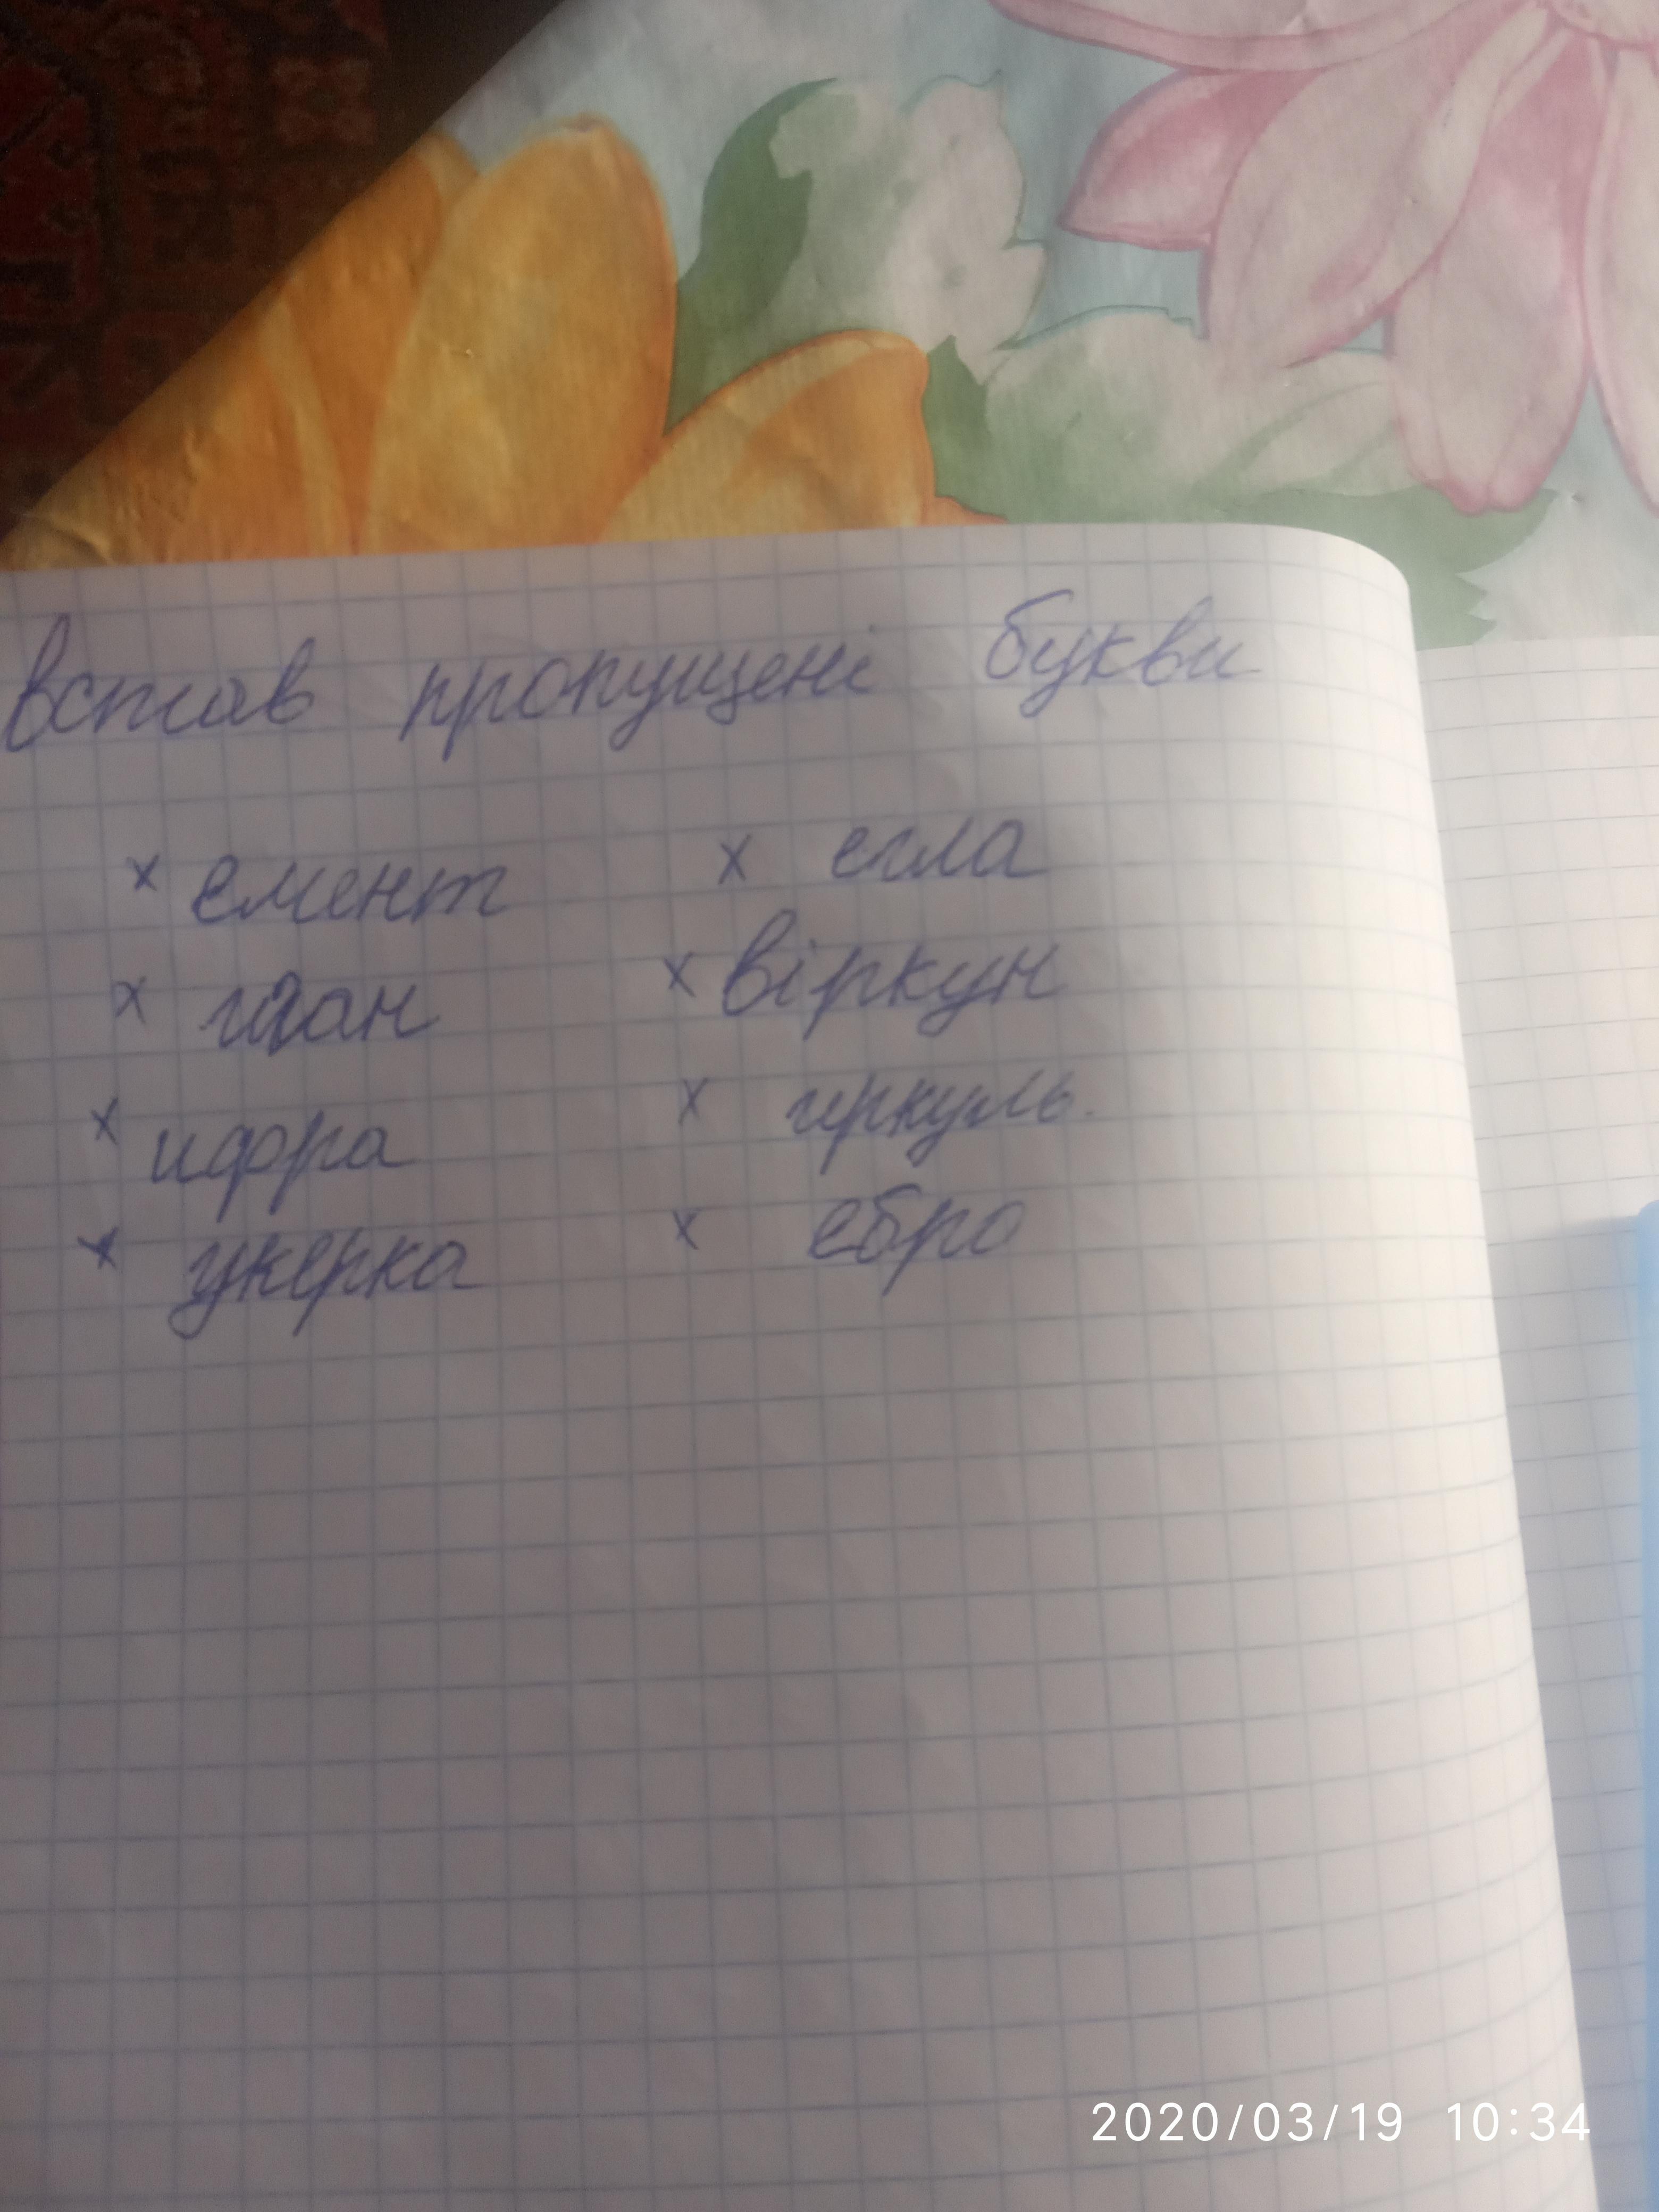 встав пропущені букви
x емент x егла
x иган x віркун
x ифра x иркуль
x укерка x ебро
2020/03/19 10:34